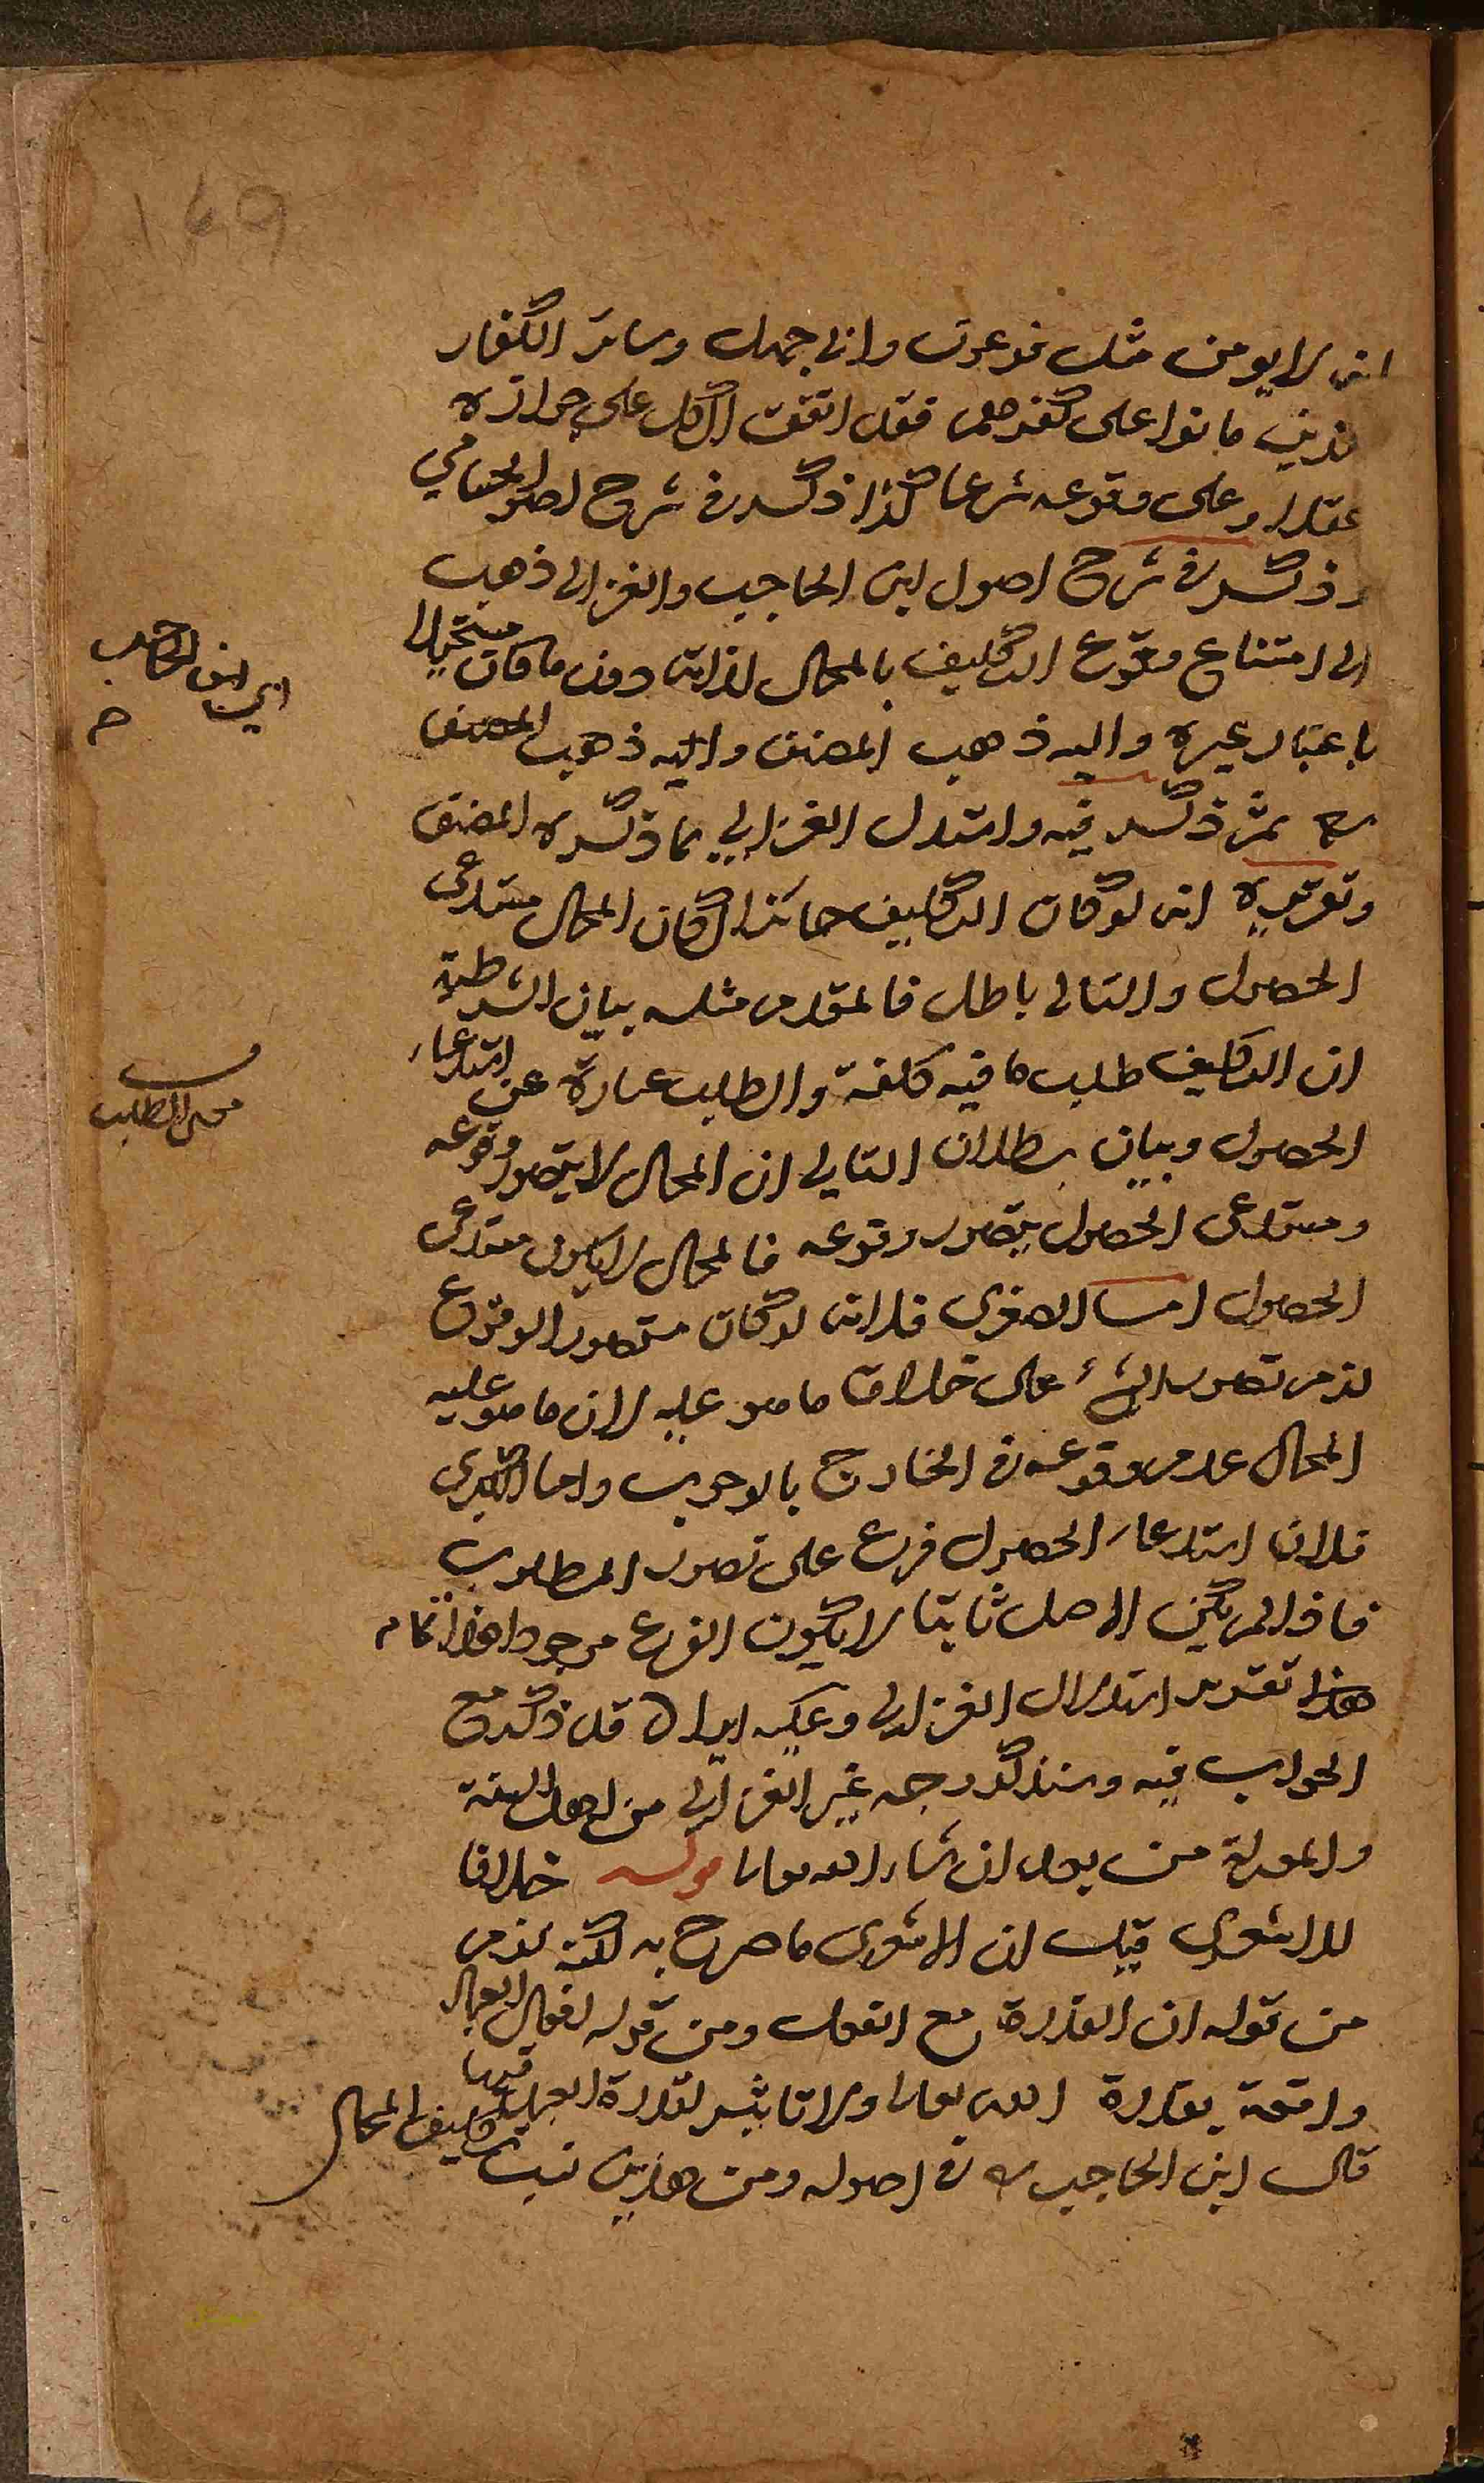 انه لا يومن مثل فرعون وابي جهل وسائر الكفار
الذين ماتوا على كفرهم فقد اتفق الكل على جوازه
عقلا وعلى وقوعه شرعا كذا ذكر في شرح اصول الحسامي
وذكر في شرح اصول ابن الحاجب والغزالي ذهب
الى امتناع وقوع التكليف بالمحال لذاته دون ما كان مستحيلا
باعتبار غيره واليه ذهب المصنف واليه ذهب المصنف
ثم ذكر فيه واستدل الغزالي بما ذكره المصنف
وتقريره انه لو كان التكليف جائزا لكان المحال مستدعى
الحصول والتالي باطل فالمقدم مثله بيان الشرطية
ان التكليف طلب ما فيه كلفة والطلب عبارة عن استدعاء
الحصول وبيان بطلان التالي ان المحال لا يتصور وقوعه
ومستدعى الحصول يتصور وقوعه فالمحال لا يكون مستدعى
الحصول اما الصغرى فلانه لو كان متصور الوقوع
لزم تصور الشئ على خلاف ما هو عليه لان ما هو عليه
المحال عدم وقوعه في الخارج بالوجوب واما الكبرى
فلان استدعاء الحصول فرع على تصور المطلوب
فاذا لم يكن الاصل ثابتا لا يكون الفرع موجودا هذا تمام
هذا تقرير استدلال الغزالي وعليه ايراد قد ذكر مع
الجواب فيه وسنذكر وجه غير الغزالي من اهل السنة
والمعتزلة من بعد ان شاء الله تعالى قوله خلافا
للاشعري قيل ان الاشعري ما صرح به لكنه لزم
من قوله ان القدرة مع الفعل ومن قوله افعال العباد
واقعة بقدرة الله تعالى ولا تاثير لقدرة العباد فيها
قال ابن الحاجب في اصوله ومن هذين نسب تكليف المحال
اي ابن الحاجب
معنى الطلب
169